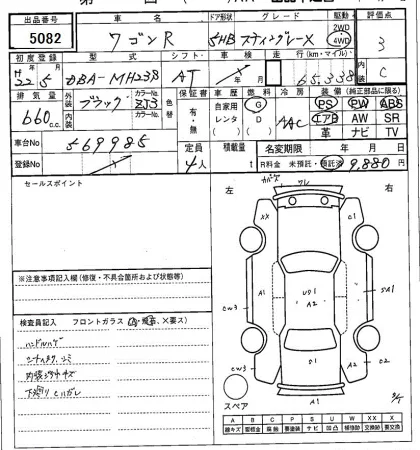 出品番号 車名 ドア形状 グレード 駆動 評価点
5082 ワゴンR 5HB スティングレーX 2WD 4WD 3
初度登録 型式 シフト 車検 走行(km・マイル) 内装
H22 5 DBA-MH23S AT 年 月 65,338 C
排気量 外装 カラーNo. 色替 保証書 車歴 燃料 冷房 装備(純正部品に限る)
660c.c. ブラック ZJ3 有・無 自家用 レンタ G D AAC PS PW ABS
内装 カラーNo. エアB AW SR
革 ナビ TV
車台No 569985 定員 積載量 名変期限 年 月 日
登録No 4人 t R料金 未預託・預託済 9,880円
セールスポイント
左 右
※注意事項記入欄(修復・不具合箇所および状態等)
検査員記入 フロントガラス
ハンドルハゲ
内装コゲキズ
下廻りヒハガレ
XX G1
A1 U01 A2 SA1
CW3
CW3 D1 A2 C2
スペア A1
A B C P S U W X XX
線キズ 腐食 要塗装 サビ 凹凸 補修跡 交換跡 要交換